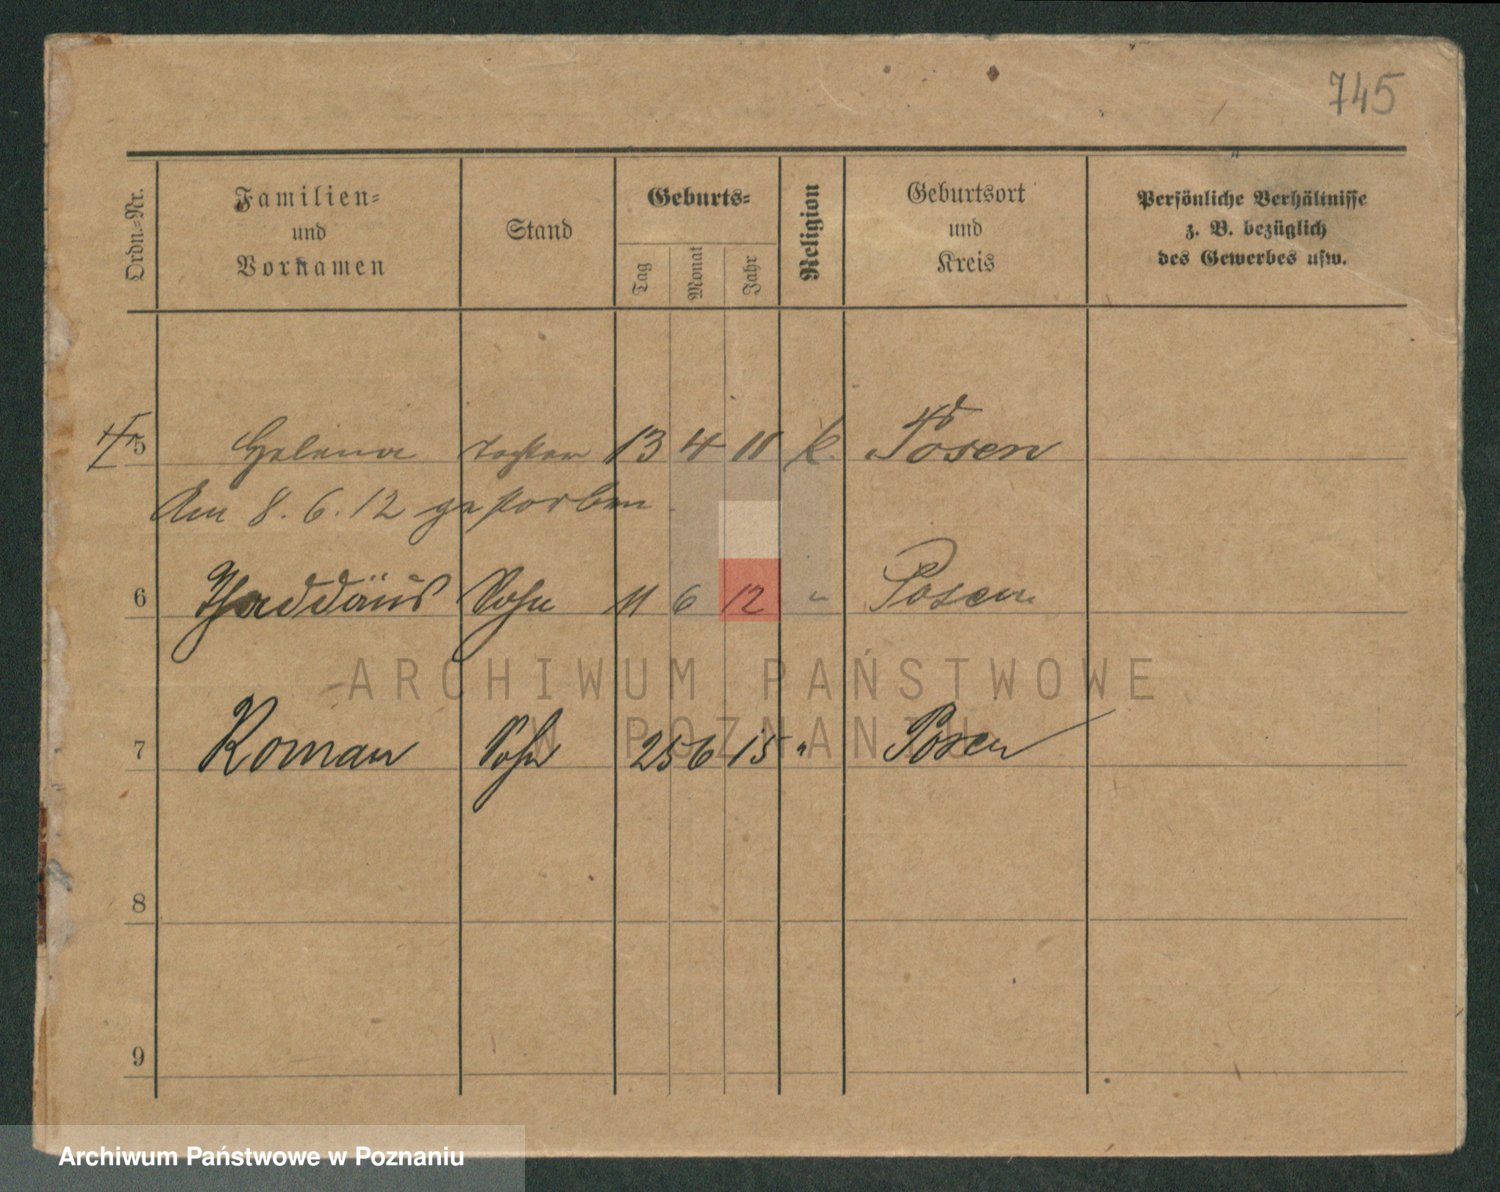 745
Ordn.-Nr.
Familien-
und
Vornamen
Stand
Geburts-
Tag
Monat
Jahr
Religion
Geburtsort
und
Kreis
Persönliche Verhältnisse
z. B. bezüglich
des Gewerbes usw.
5 Helena Tochter 13 4 11 k. Posen
Am 8. 6. 12 gestorben
6 Thaddäus Sohn 11 6 12 " Posen
ARCHIWUM PAŃSTWOWE
W POZNANIU
7 Roman Sohn 25 6 15 " Posen
8
9
Archiwum Państwowe w Poznaniu